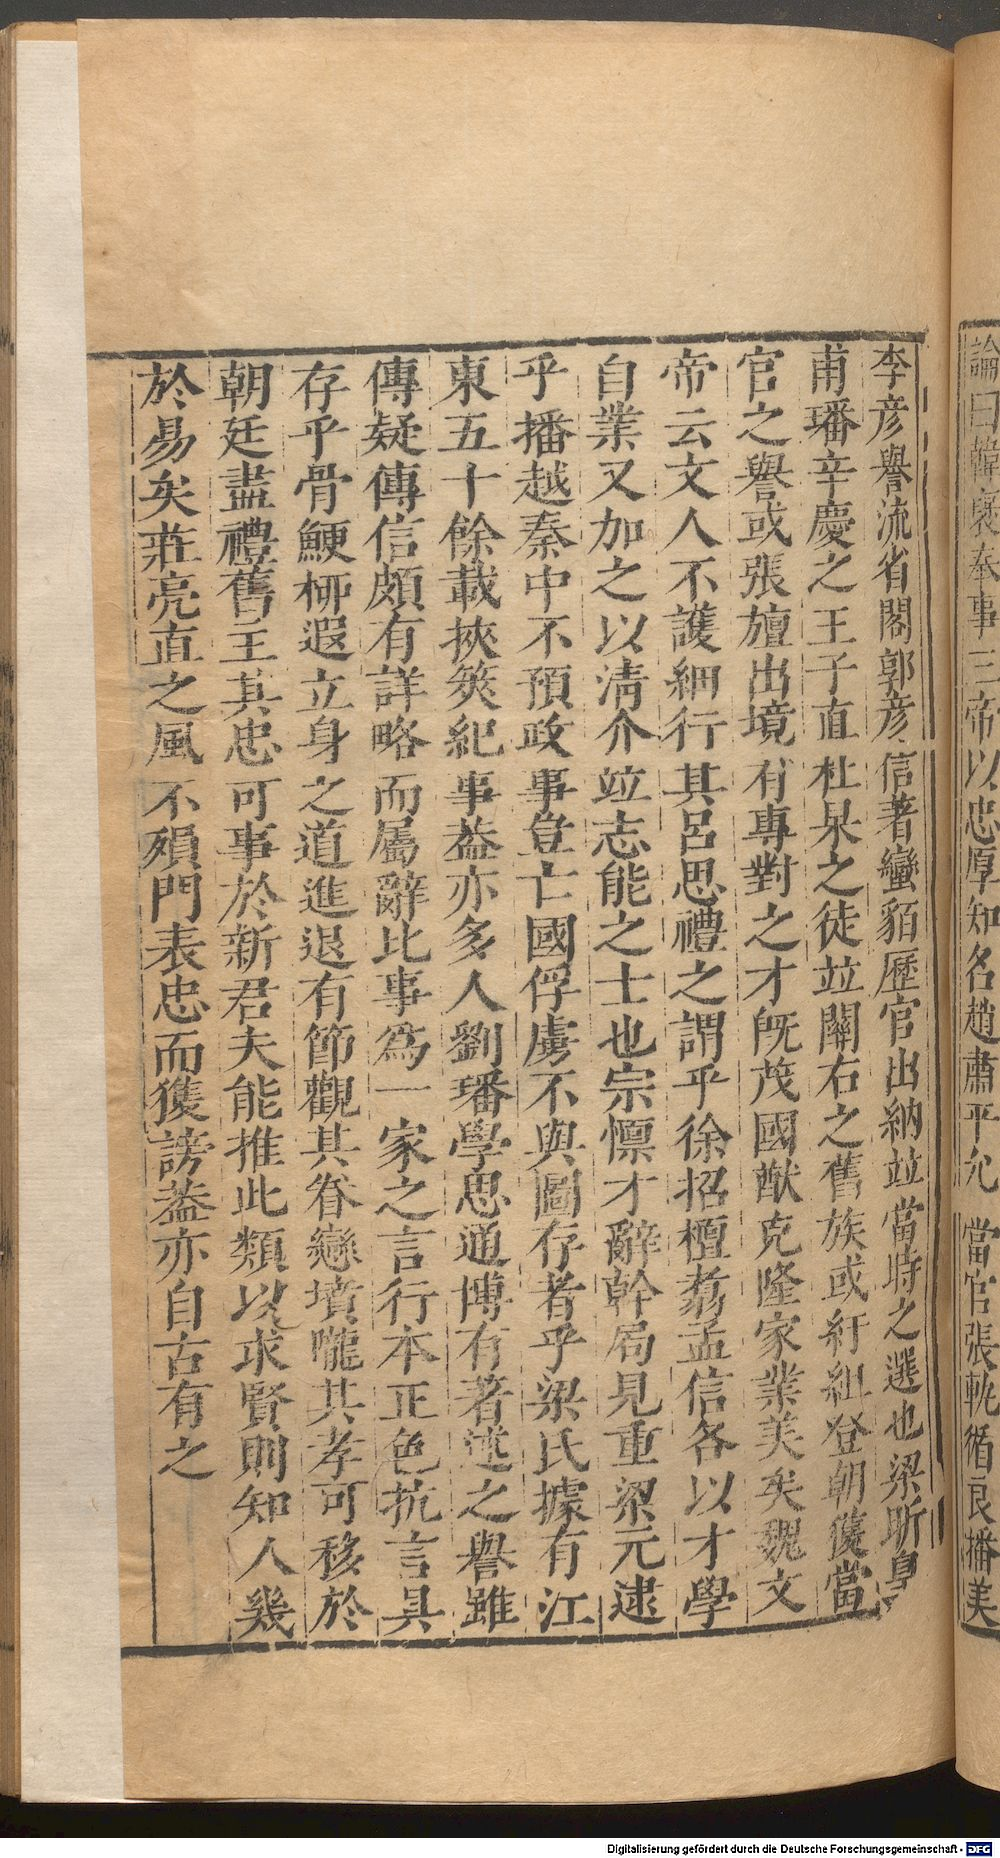 論曰韓襃奉事三帝以忠厚知名趙肅平允當官張軌循良播美
李彦譽流省閣郭彦信著蠻貊歷官出納竝當時之選也梁昕皇
甫璠辛慶之王子直杜杲之徒竝關右之舊族或紆組登朝獲當
官之譽或張旜出境有專對之才旣茂國猷克隆家業美矣魏文
帝云文人不護細行其呂思禮之謂乎徐招檀翥孟信各以才學
自業又加之以淸介竝志能之士也宗懍才辭幹局見重梁元逮
乎播越秦中不預政事豈亡國俘虜不與圖存者乎梁氏據有江
東五十餘載挾筴紀事葢亦多人劉璠學思通博有著述之譽雖
傳疑傳信頗有詳略而屬辭比事爲一家之言行本正色抗言具
存乎骨鯁柳遐立身之道進退有節觀其眷戀墳隴其孝可移於
朝廷盡禮舊主其忠可事於新君夫能推此類以求賢則知人幾
於易矣莊亮直之風不殞門表忠而獲謗葢亦自古有之
Digitalisierung gefördert durch die Deutsche Forschungsgemeinschaft - DFG